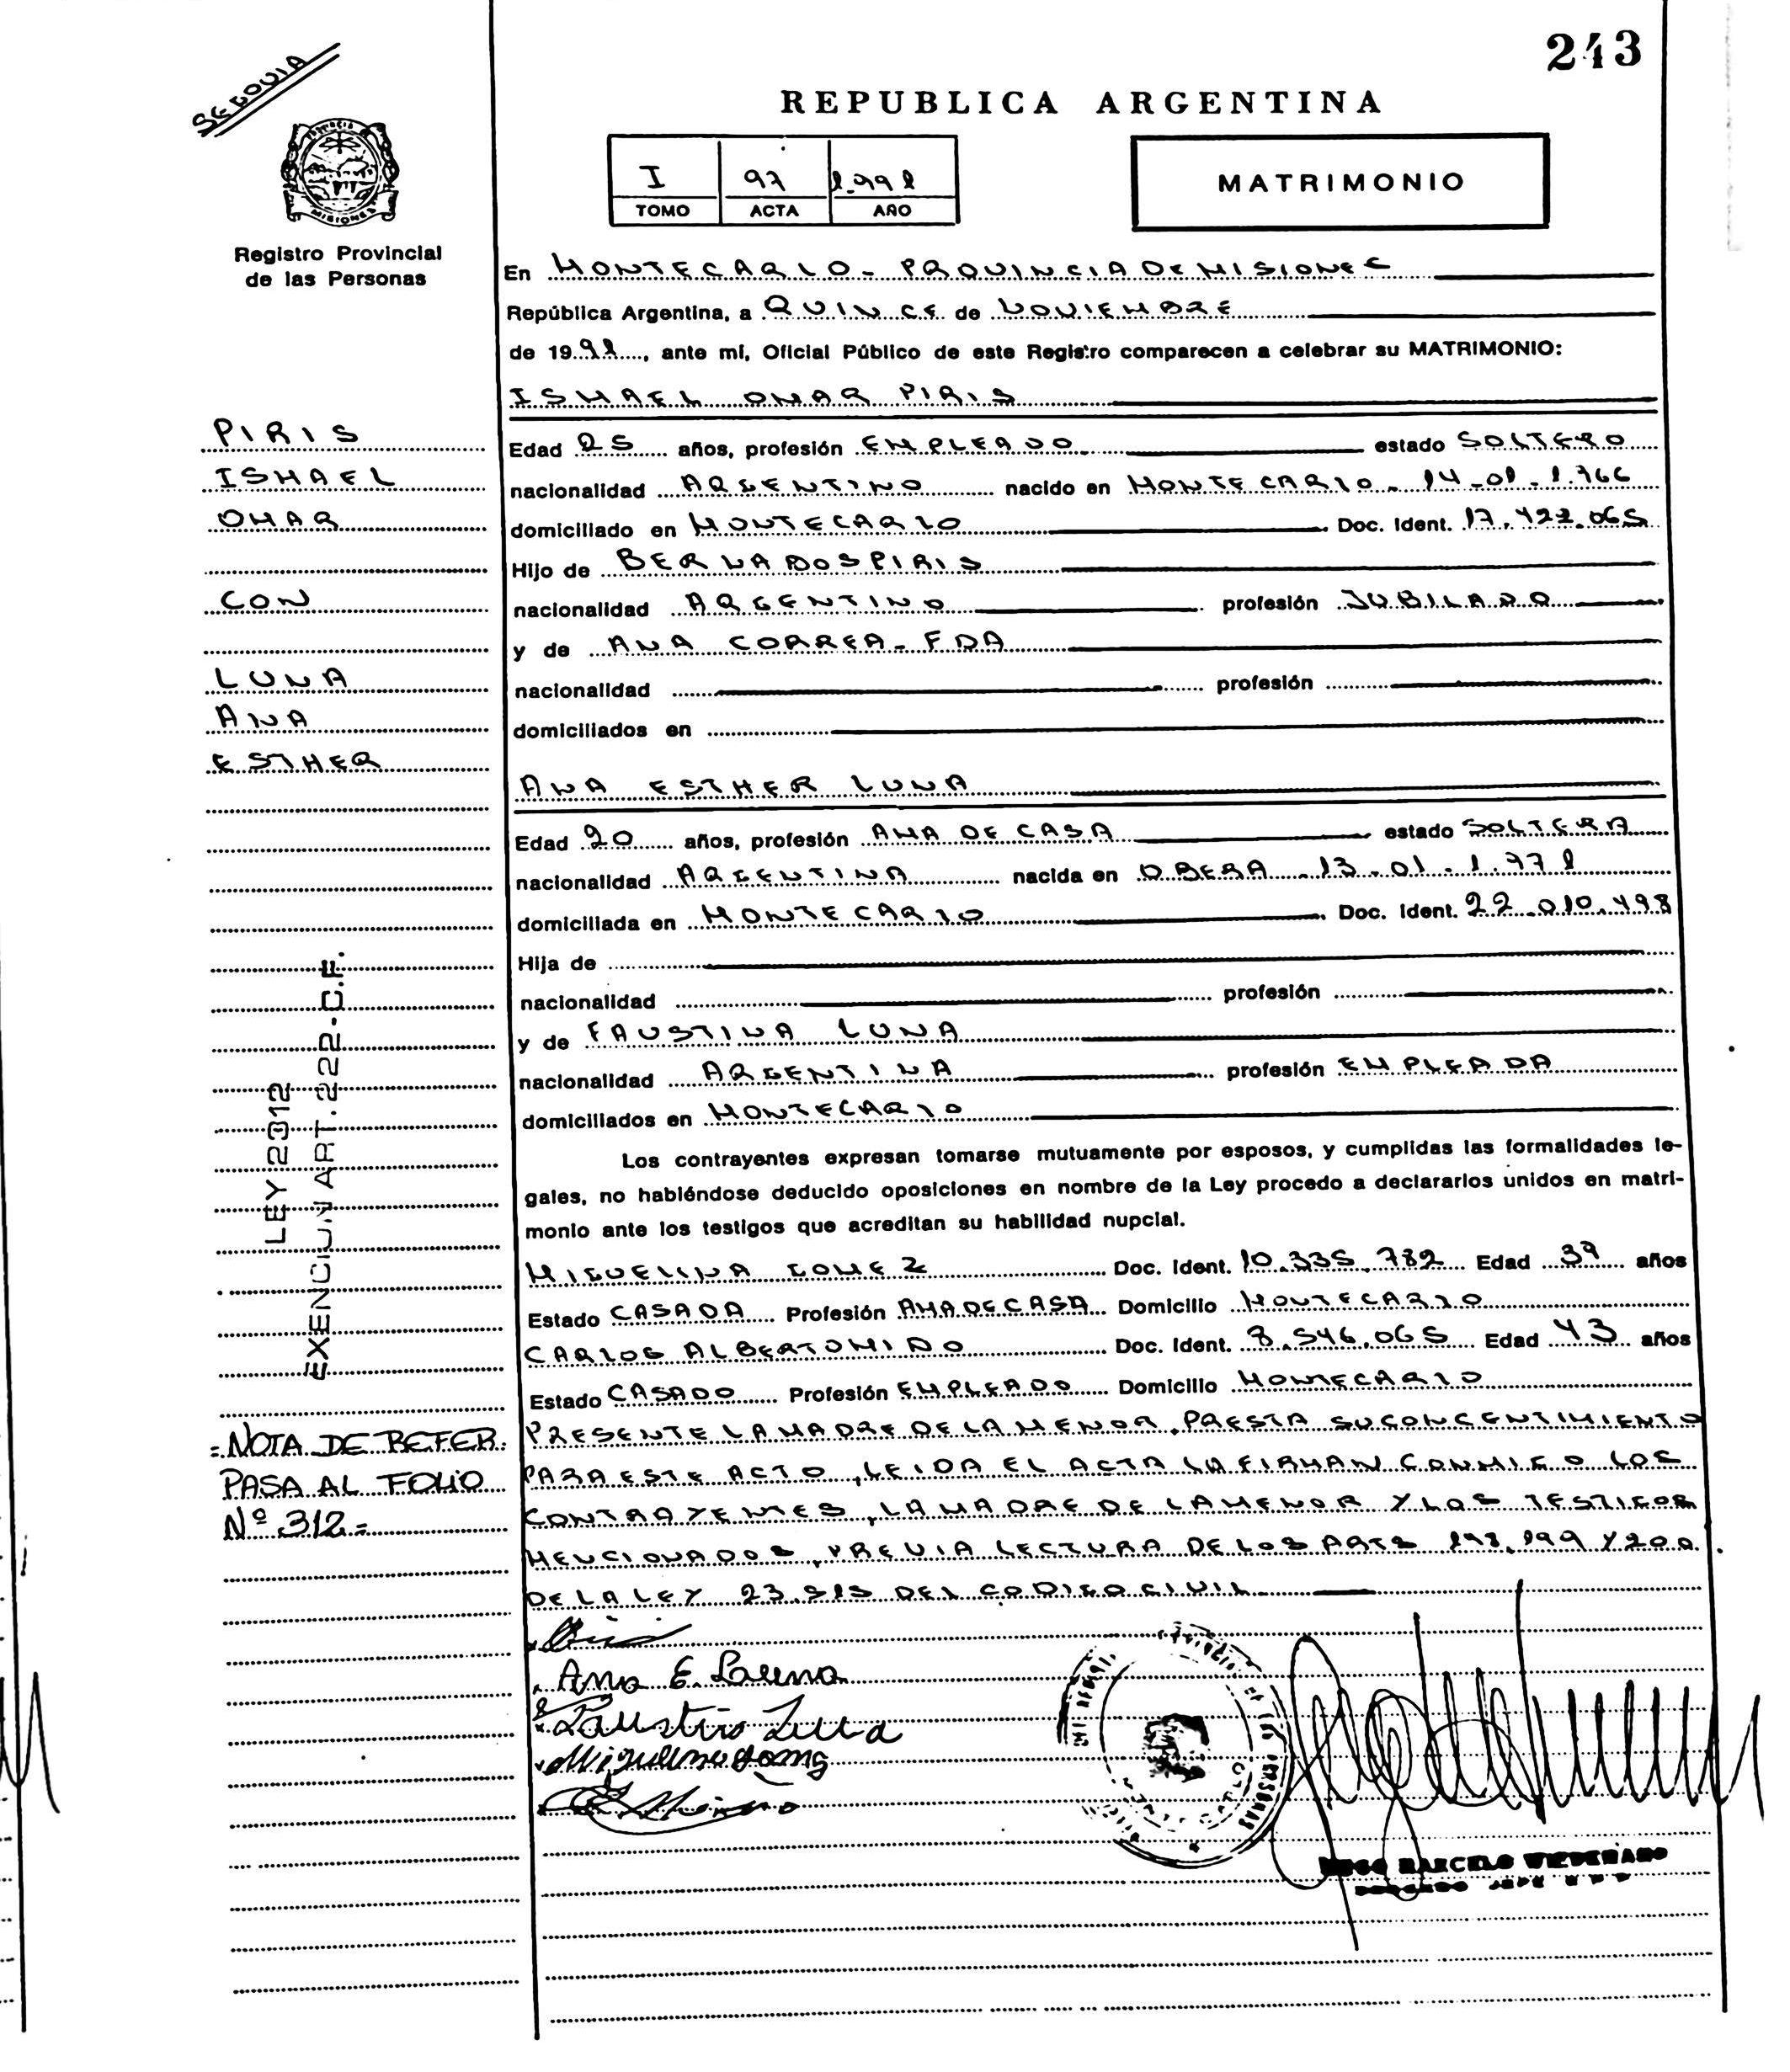 243
SEGOVIA
REPUBLICA ARGENTINA
I 97 1.991
TOMO ACTA AÑO
MATRIMONIO
MISIONES
Registro Provincial
de las Personas
En MONTECARLO - PROVINCIA DE MISIONES
República Argentina, a QUINCE de NOVIEMBRE
de 1991, ante mí, Oficial Público de este Registro comparecen a celebrar su MATRIMONIO:
ISMAEL OMAR PIRIS
PIRIS
ISMAEL
OMAR
CON
LUNA
ANA
ESTHER
Edad 25 años, profesión EMPLEADO estado SOLTERO
nacionalidad ARGENTINO nacido en MONTECARLO - 14-01-1.966
domiciliado en MONTECARLO Doc. Ident. 17.422.065
Hijo de BERNARDO PIRIS
nacionalidad ARGENTINO profesión JUBILADO
y de ANA CORREA - FDA
nacionalidad profesión
domiciliados en
ANA ESTHER LUNA
Edad 20 años, profesión AMA DE CASA estado SOLTERA
nacionalidad ARGENTINA nacida en OBERA - 13-01-1.971
domiciliada en MONTECARLO Doc. Ident. 22.010.498
Hija de
nacionalidad profesión
y de FAUSTINA LUNA
nacionalidad ARGENTINA profesión EMPLEADA
domiciliados en MONTECARLO
LEY 2312
EXENCION ART. 222-C.F.
Los contrayentes expresan tomarse mutuamente por esposos, y cumplidas las formalidades le-
gales, no habiéndose deducido oposiciones en nombre de la Ley procedo a declararlos unidos en matri-
monio ante los testigos que acreditan su habilidad nupcial.
MIGUELINA GOMEZ Doc. Ident. 10.335.782 Edad 39 años
Estado CASADA Profesión AMA DE CASA Domicilio MONTECARLO
CARLOS ALBERTO MIÑO Doc. Ident. 8.546.065 Edad 43 años
Estado CASADO Profesión EMPLEADO Domicilio MONTECARLO
PRESENTE LA MADRE DE LA MENOR, PRESTA SU CONCENTIMIENTO
PARA ESTE ACTO, LEIDA EL ACTA LA FIRMAN CONMIGO LOS
CONTRAYENTES, LA MADRE DE LA MENOR Y LOS TESTIGOS
MENCIONADOS, PREVIA LECTURA DE LOS ARTS 198, 199 Y 200
DE LA LEY 23.515 DEL CODIGO CIVIL
=NOTA DE REFER.
PASA AL FOLIO
Nº 312=
Ana E. Luna
Faustina Luna
Miguelina Gomez
MARCELO